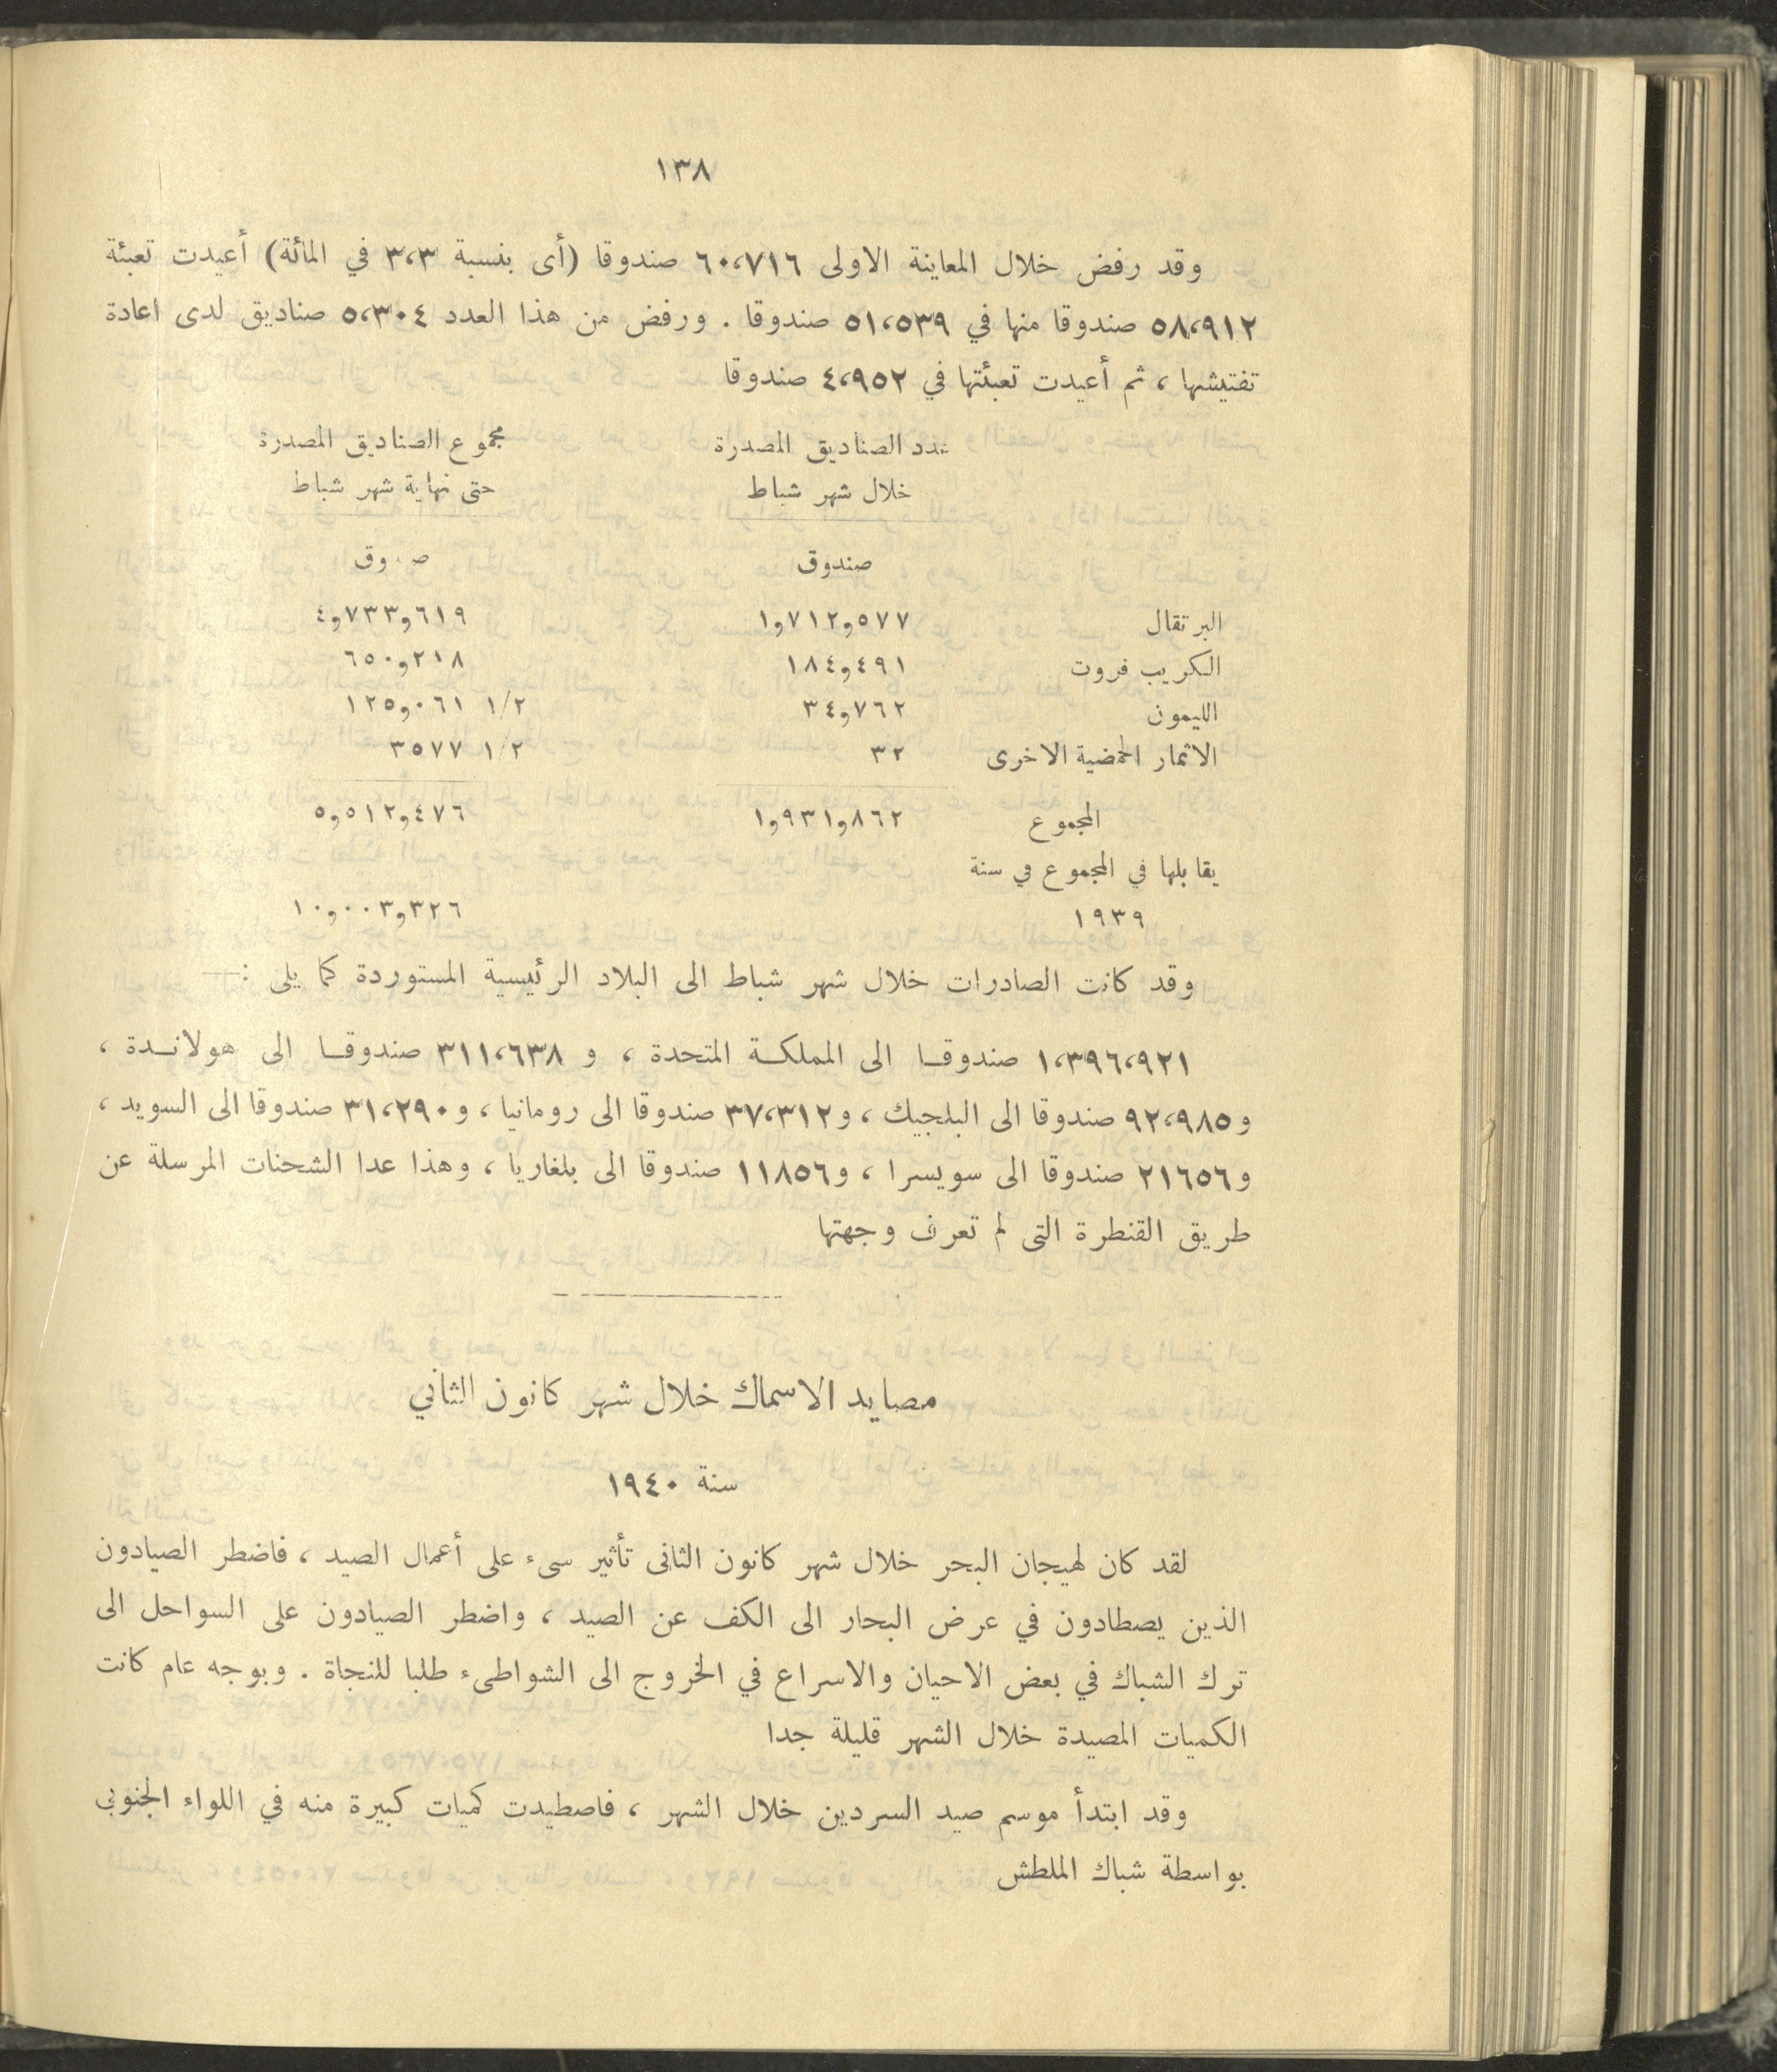 ١٣٨
وقد رفض خلال المعاينة الاولى ٦٠،٧١٦ صندوقا (أى بنسبة ٣،٣ في المائة) أعيدت تعبئة
٥٨،٩١٢ صندوقا منها في ٥١،٥٣٩ صندوقا . ورفض من هذا العدد ٥،٣٠٤ صناديق لدى اعادة
تفتيشها ، ثم أعيدت تعبئتها في ٤،٩٥٢ صندوقا
عدد الصناديق المصدرة مجموع الصناديق المصدرة
خلال شهر شباط حتى نهاية شهر شباط
صندوق صندوق
البرتقال ١و٧١٢و٥٧٧ ٤و٧٣٣و٦١٩
الكريب فروت ١٨٤و٤٩١ ٦٥٠و٢١٨
الليمون ٣٤و٧٦٢ ١٢٥و٠٦١ ١/٢
الاثمار الحمضية الاخرى ٣٢ ٣٥٧٧ ١/٢
المجموع ١و٩٣١و٨٦٢ ٥و٥١٢و٤٧٦
يقابلها في المجموع في سنة
١٩٣٩ ١٠و٠٠٣و٣٢٦
وقد كانت الصادرات خلال شهر شباط الى البلاد الرئيسية المستوردة كما يلى :—
١،٣٩٦،٩٢١ صندوقا الى المملكة المتحدة ، و ٣١١،٦٣٨ صندوقا الى هولاندة ،
و٩٢،٩٨٥ صندوقا الى البلجيك ، و٣٧،٣١٢ صندوقا الى رومانيا ، و٣١،٢٩٠ صندوقا الى السويد ،
و٢١٦٥٦ صندوقا الى سويسرا ، و١١٨٥٦ صندوقا الى بلغاريا ، وهذا عدا الشحنات المرسلة عن
طريق القنطرة التى لم تعرف وجهتها
مصايد الاسماك خلال شهر كانون الثاني
سنة ١٩٤٠
لقد كان لهيجان البحر خلال شهر كانون الثانى تأثير سىء على أعمال الصيد ، فاضطر الصيادون
الذين يصطادون في عرض البحار الى الكف عن الصيد ، واضطر الصيادون على السواحل الى
ترك الشباك في بعض الاحيان والاسراع في الخروج الى الشواطىء طلبا للنجاة . وبوجه عام كانت
الكميات المصيدة خلال الشهر قليلة جدا
وقد ابتدأ موسم صيد السردين خلال الشهر ، فاصطيدت كميات كبيرة منه في اللواء الجنوبى
بواسطة شباك الملطش